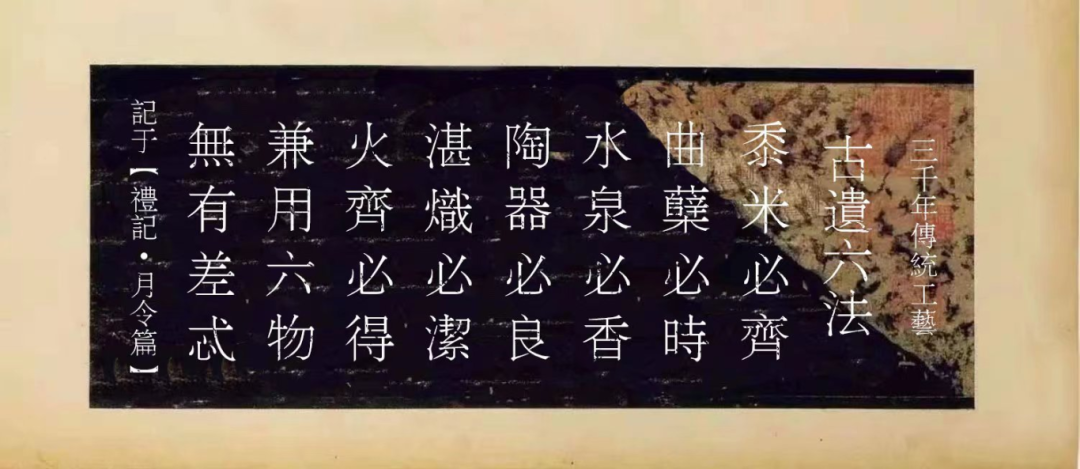 三千年傳統工藝
古遺六法
黍米必齊
曲糵必時
水泉必香
陶器必良
湛熾必潔
火齊必得
兼用六物
無有差忒
記于【禮記·月令篇】